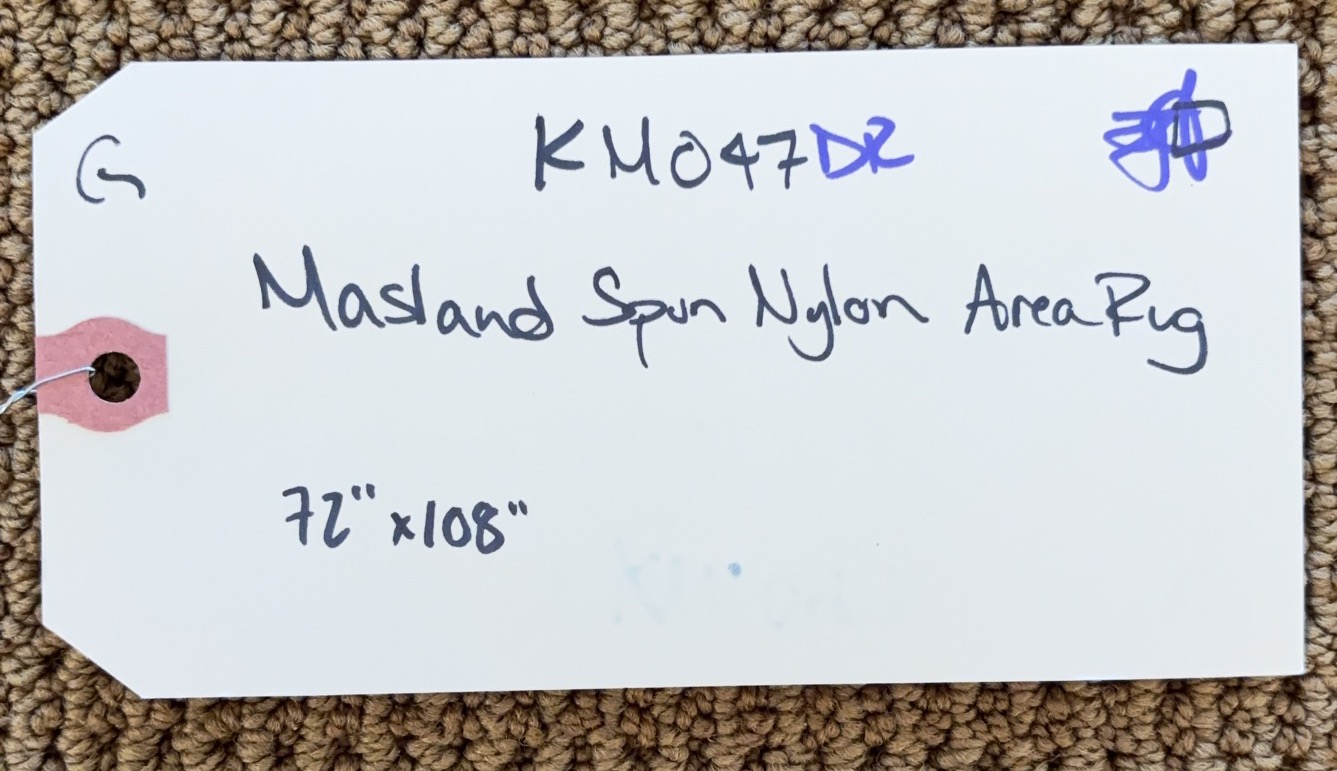 G KM047DR
Masland Spun Nylon Area Rug
72" x 108"